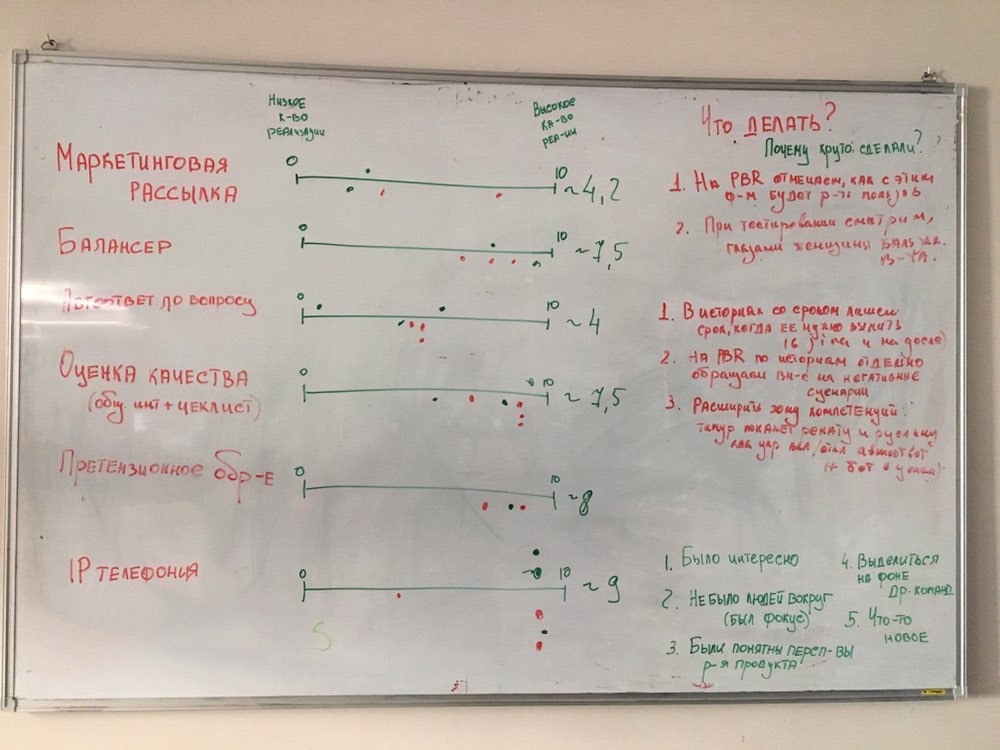 Низкое
к-во
реализации
Высокое
ка-во
реа-ии
Маркетинговая
рассылка
0
10
~4,2
Балансер
0
10
~7,5
Автоответ по вопросу
0
10
~4
Оценка качества
(общ. инт + чеклист)
0
10
~7,5
Претензионное обр-е
0
10
~8
IP телефония
0
10
~9
5
Что делать?
Почему круто сделали?
1. На PBR отмечаем, как с этим
ф-м будет р-ть польз-в
2. При тестировании смотрим,
глазами женщины
В-ТА.
1. В историях со сроком пишем
срок, когда ее нужно
и на после)
2. На PBR по историям отдельно
обращаем вн-е на негативные
сценарии
3. Расширить зону компетенций:
Тимур покажет Ренату и Руслану
как
(+ бот
1. Было интересно
2. Не было людей вокруг
(был фокус)
3. Были понятны персп-вы
р-я продукта
4. Выделиться
на фоне
др. команд
5. Что-то
новое